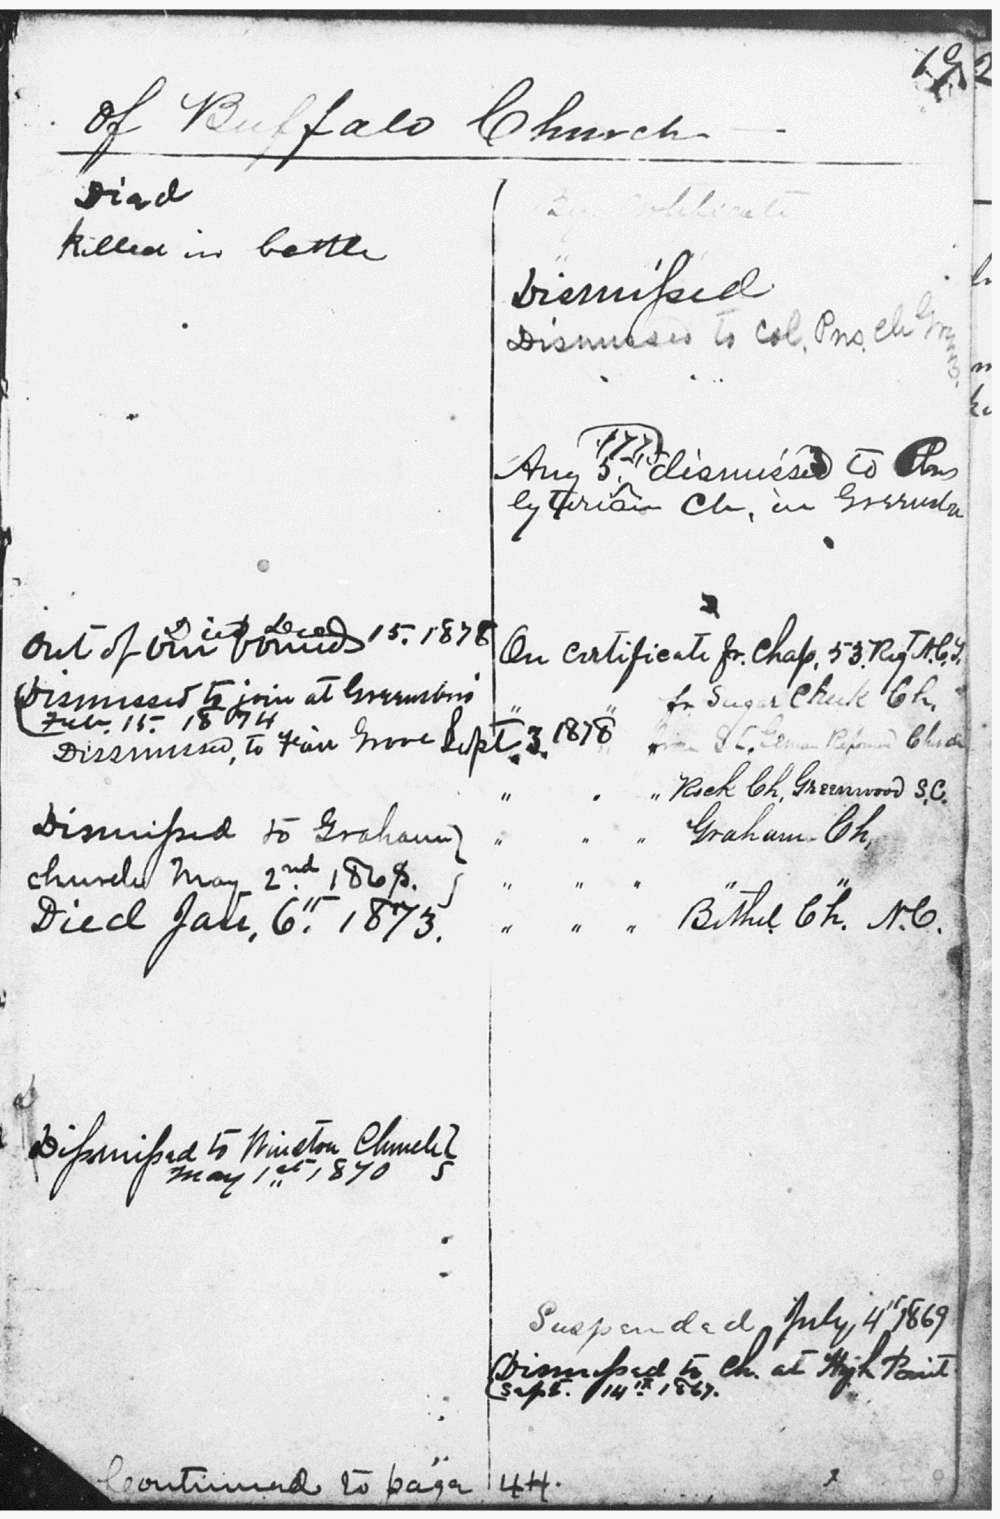 of Buffalo Church
Died
killed in battle
By Certificate
Dismissed
Dismissed to Col. Pres. Ch
Aug 5. dismissed to Pres
byterian Ch. in Greensboro
Died Dec
Out of our bounds 15. 1878
On certificate fr. Chap. 53. Regt N.C.T.
Dismissed to join at Greensboro
Feb. 15. 1874
" " fr Sugar Creek Ch.
Dismissed, to Fair Grove Sept. 3. 1878
" from Reformed Church
" " " Rock Ch. Greenwood S.C.
Dismissed to Graham
" " " Graham Ch.
church May 2nd. 186
" " " " "
Died Jan. 6th 1873.
" " " Bethel Ch. N.C.
Dismissed to Winston Church
May 1st 1870
Suspended July 4th 1869
Dismissed to Ch. at High Point
Sept. 14th 1867.
Continued to page 44.